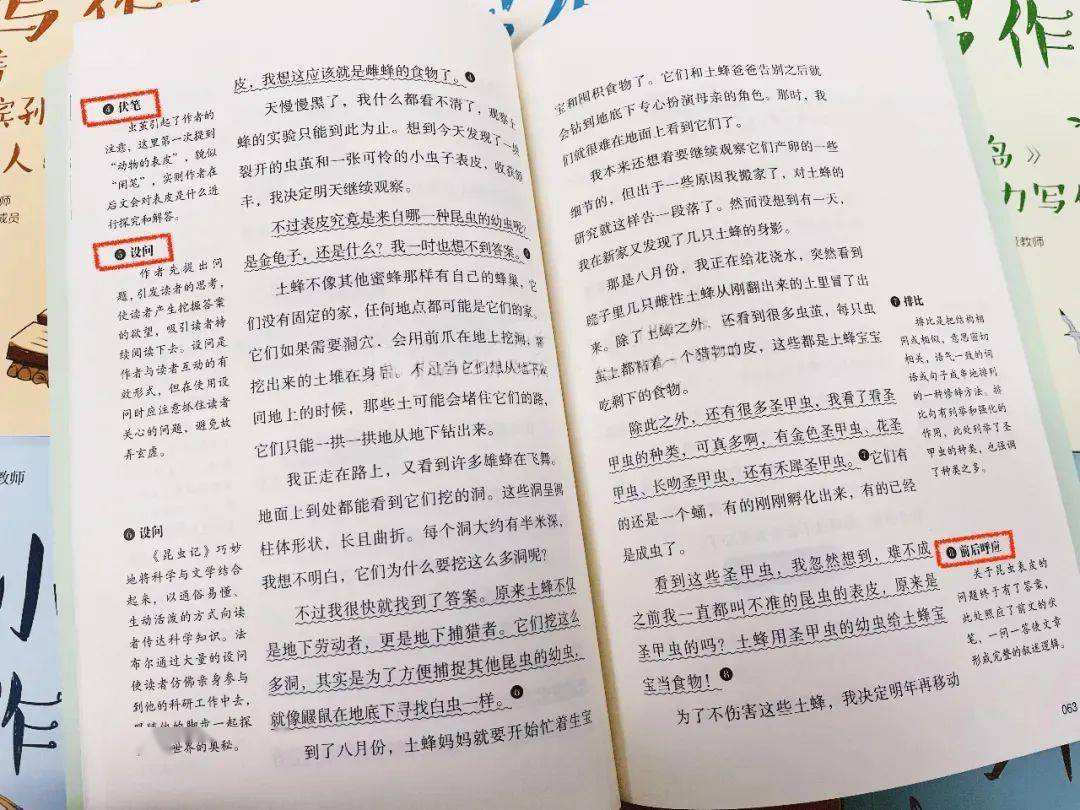 皮，我想这应该就是雌蜂的食物了。❹
天慢慢黑了，我什么都看不清了，观察土
蜂的实验只能到此为止。想到今天发现了一块
裂开的虫茧和一张可怜的小虫子表皮，收获颇
丰，我决定明天继续观察。
不过表皮究竟是来自哪一种昆虫的幼虫呢？
是金龟子，还是什么？我一时也想不到答案。❺
土蜂不像其他蜜蜂那样有自己的蜂巢，它
们没有固定的家，任何地点都可能是它们的家。
它们如果需要洞穴，会用前爪在地上挖洞，将
挖出来的土堆在身后。不过当它们想从地下
回地上的时候，那些土可能会堵住它们的路，
它们只能一拱一拱地从地下钻出来。
我正走在路上，又看到许多雄蜂在飞舞。
地面上到处都能看到它们挖的洞。这些洞呈圆
柱体形状，长且曲折。每个洞大约有半米深，
我想不明白，它们为什么要挖这么多洞呢？
不过我很快就找到了答案。原来土蜂不仅
是地下劳动者，更是地下捕猎者。它们挖这么
多洞，其实是为了方便捕捉其他昆虫的幼虫，
就像鼹鼠在地底下寻找白虫一样。❻
到了八月份，土蜂妈妈就要开始忙着生宝
❹ 伏笔
虫茧引起了作者的
注意，这里第一次提到
“动物的表皮”，貌似
“闲笔”，实则作者在
后文会对表皮是什么进
行探究和解答。
❺ 设问
作者先提出问
题，引发读者的思考，
使读者产生挖掘答案
的欲望，吸引读者持
续阅读下去。设问是
作者与读者互动的有
效形式，但在使用设
问时应注意抓住读者
关心的问题，避免故
弄玄虚。
❻ 设问
《昆虫记》巧妙
地将科学与文学结合
起来，以通俗易懂、
生动活泼的方式向读
者传达科学知识。法
布尔通过大量的设问
使读者仿佛亲身参与
到他的科研工作中去，
跟随他的脚步一起探
世界的奥秘。
宝和囤积食物了。它们和土蜂爸爸告别之后就
会钻到地底下专心扮演母亲的角色。那时，我
们就很难在地面上看到它们了。
我本来还想着要继续观察它们产卵的一些
细节的，但出于一些原因我搬家了，对土蜂的
研究就这样告一段落了。然而没想到有一天，
我在新家又发现了几只土蜂的身影。
那是八月份，我正在给花浇水，突然看到
院子里几只雌性土蜂从刚翻出来的土里冒了出
来。除了土蜂之外，还看到很多虫茧，每只虫
茧上都粘着一个猎物的皮，这些都是土蜂宝宝
吃剩下的食物。
除此之外，还有很多圣甲虫，我看了看圣
甲虫的种类，可真多啊，有金色圣甲虫、花圣
甲虫、长吻圣甲虫，还有禾犀圣甲虫。❼它们有
的还是一个蛹，有的刚刚孵化出来，有的已经
是成虫了。
看到这些圣甲虫，我忽然想到，难不成
之前我一直都叫不准的昆虫的表皮，原来是
圣甲虫的吗？土蜂用圣甲虫的幼虫给土蜂宝
宝当食物！❽
为了不伤害这些土蜂，我决定明年再移动
❼ 排比
排比是把结构相
同或相似，意思密切
相关，语气一致的词
语或句子成串地排列
的一种修辞方法。排
比句有列举和强化的
作用，此处列举了圣
甲虫的种类，也强调
了种类之多。
❽ 前后呼应
关于昆虫表皮的
问题终于有了答案，
此处照应了前文的伏
笔，一问一答使文章
形成完整的叙述逻辑。
063
写作
人
教师
成员
作
岛》
力写作
级教师
教师
小
作